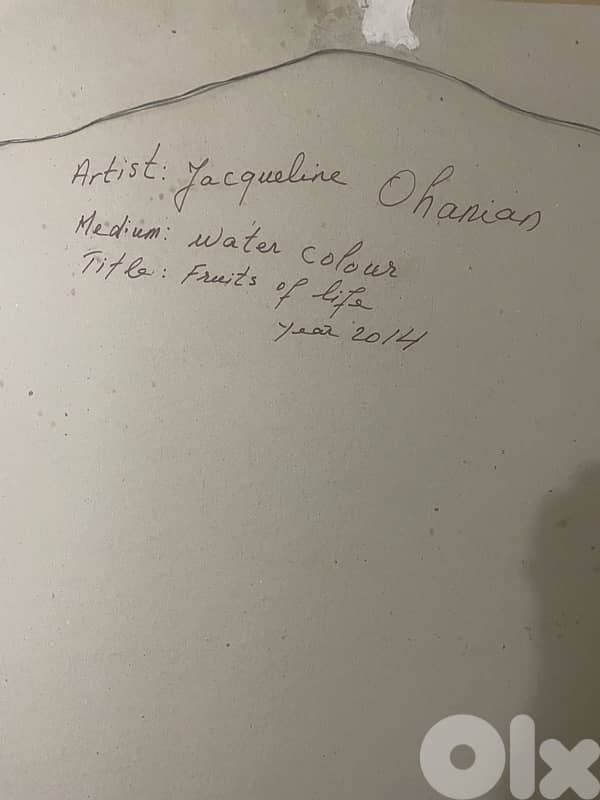 Artist: Jacqueline Ohanian
Medium: water colour
Title: Fruits of life
year 2014
Olx